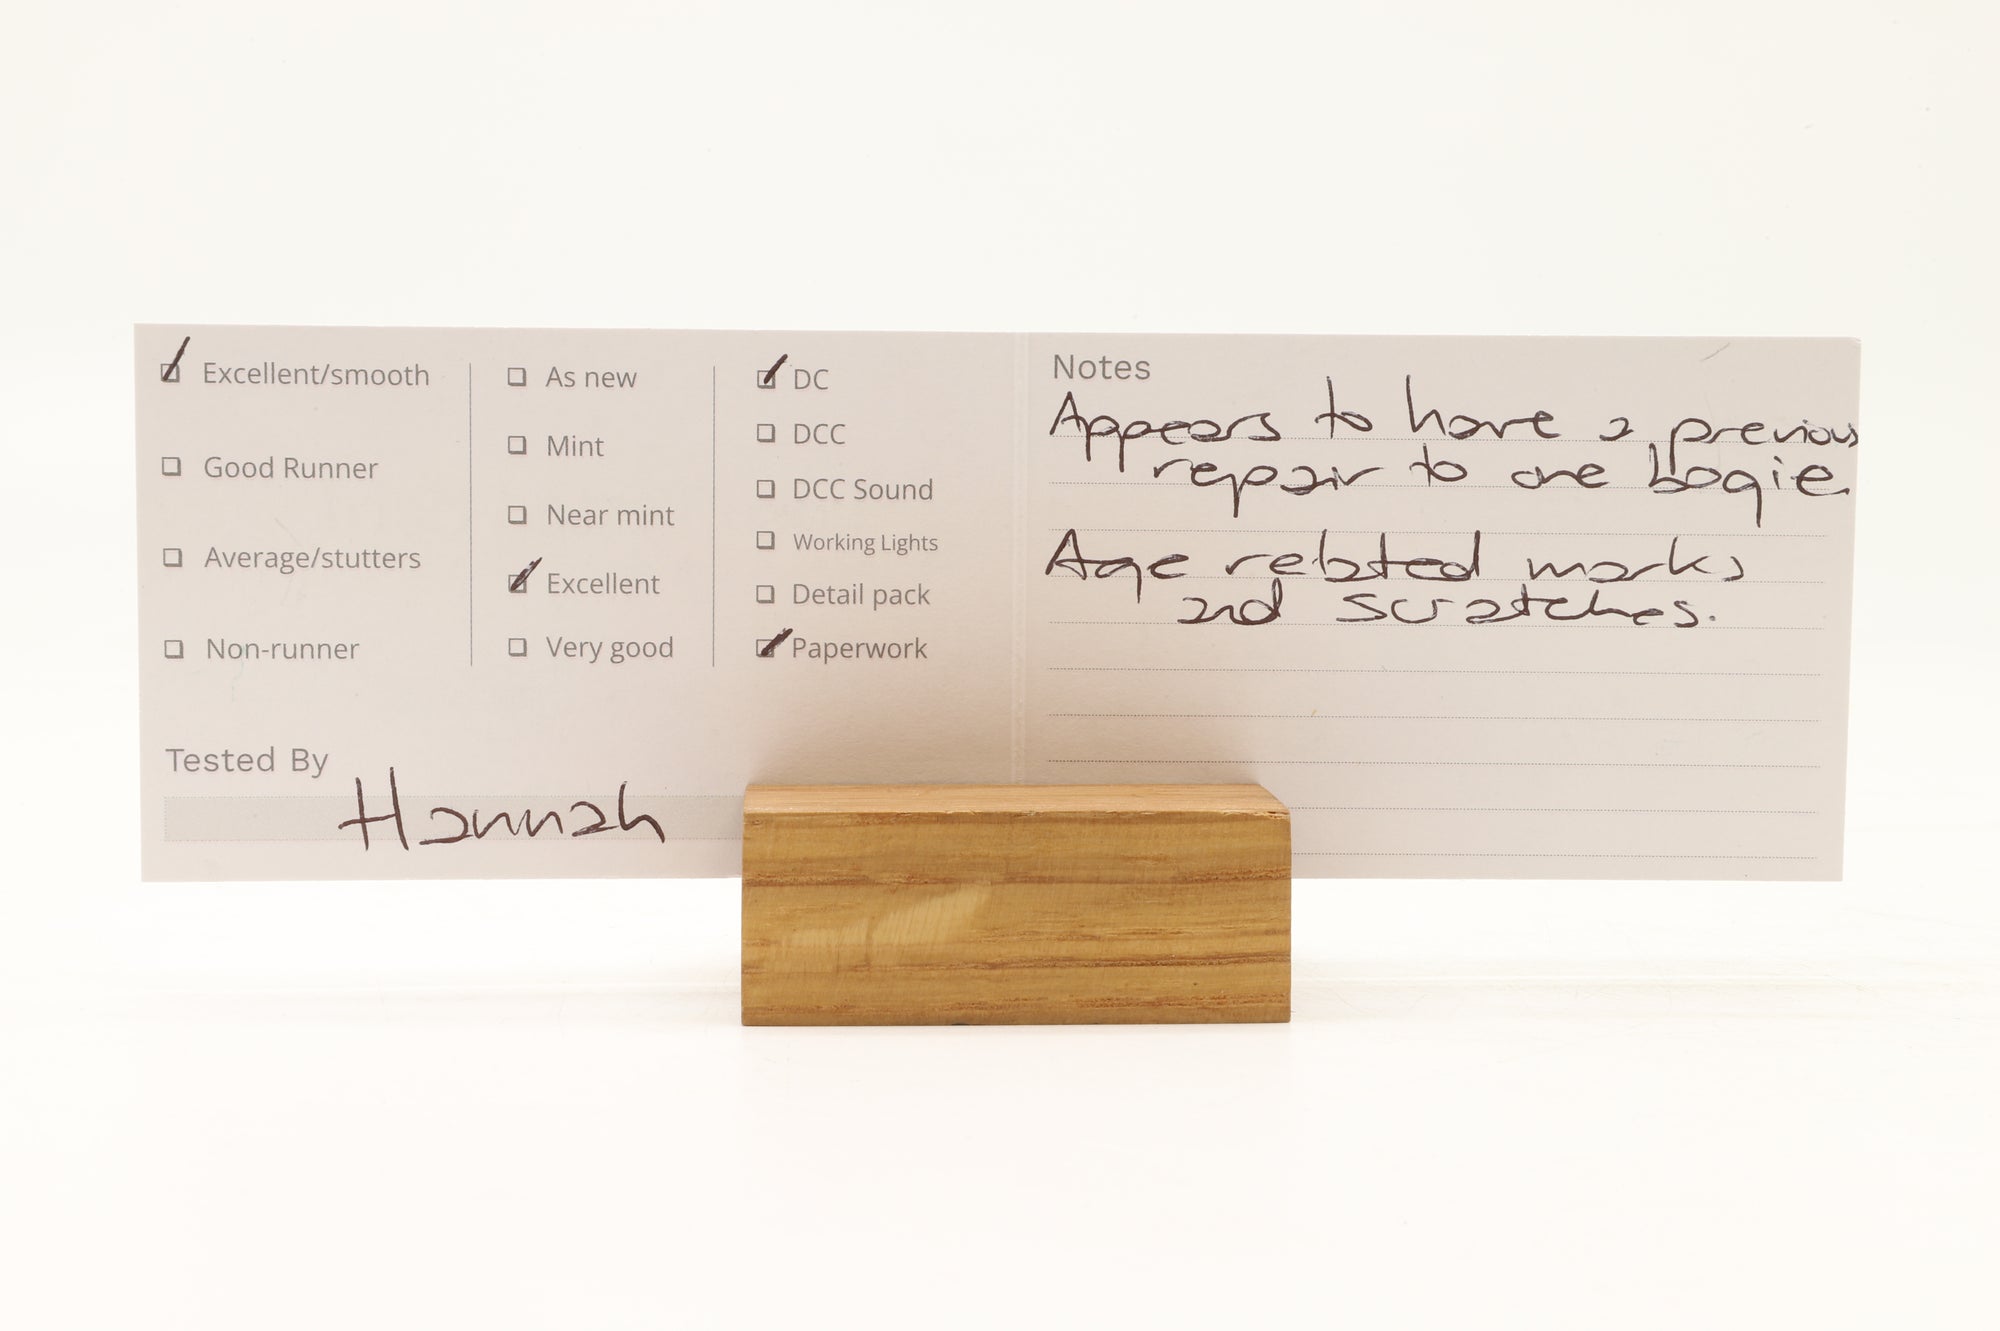 Excellent/smooth
Good Runner
Average/stutters
Non-runner
As new
Mint
Near mint
Excellent
Very good
DC
DCC
DCC Sound
Working Lights
Detail pack
Paperwork
Tested By
Hannah
Notes
Appears to have a previous
repair to one bogie.
Age related marks
and scratches.